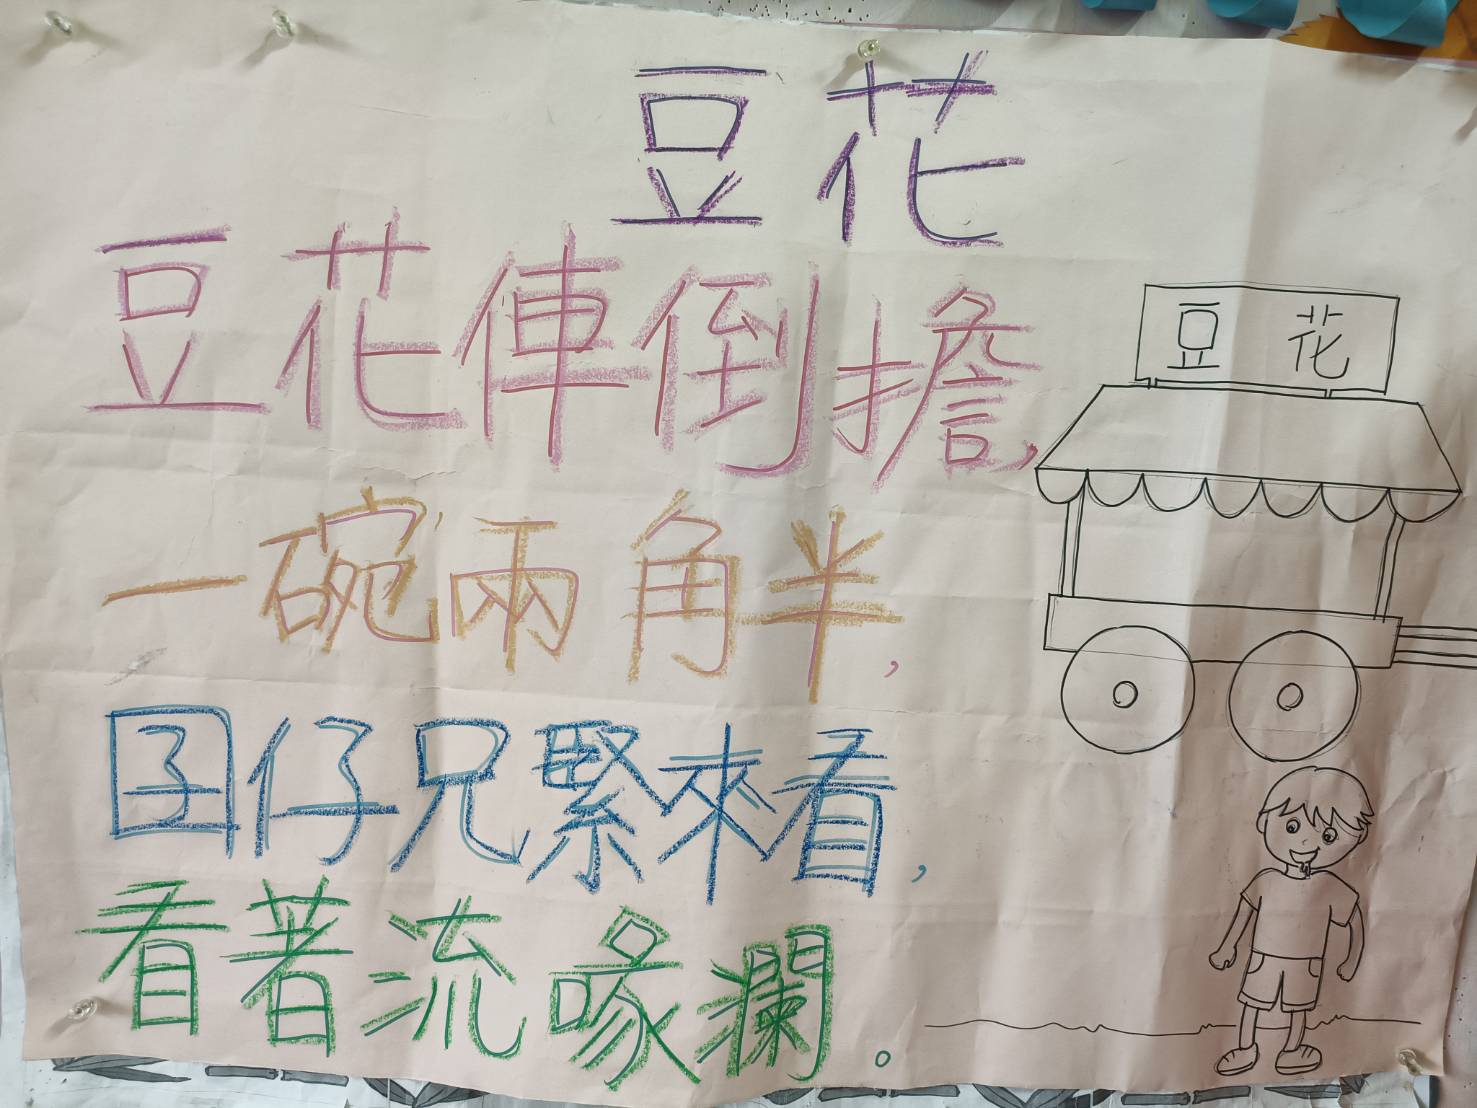 豆花
豆花俥倒擔,
一碗兩角半,
囝仔兄緊來看,
看著流喙瀾。
豆花